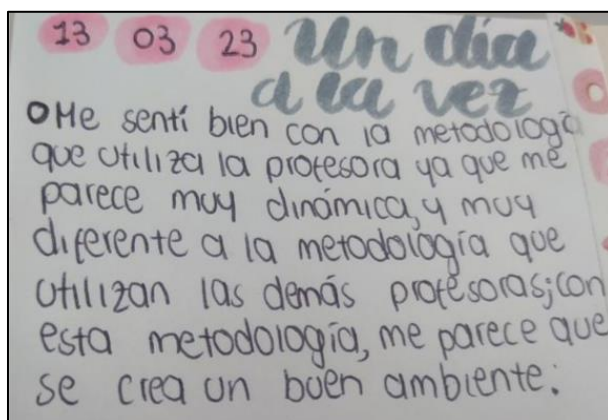 13 03 23 Un día
a la vez
Me sentí bien con la metodología
que utiliza la profesora ya que me
parece muy dinámica, y muy
diferente a la metodología que
utilizan las demás profesoras; con
esta metodología, me parece que
se crea un buen ambiente.